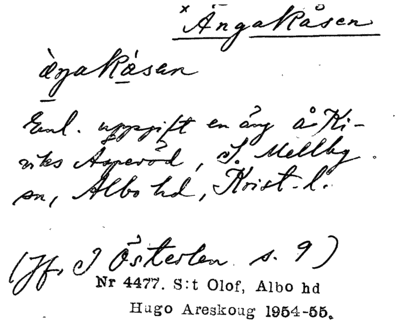 × Ängakåsen
äŋakåsen
Enl. uppgift en äng å Ki-
viks Asperöd, S. Mellby
sn, Albo hd, Krist. l.
(Jf. I Österlen s. 9)
Nr 4477. S:t Olof, Albo hd
Hugo Areskoug 1954-55.